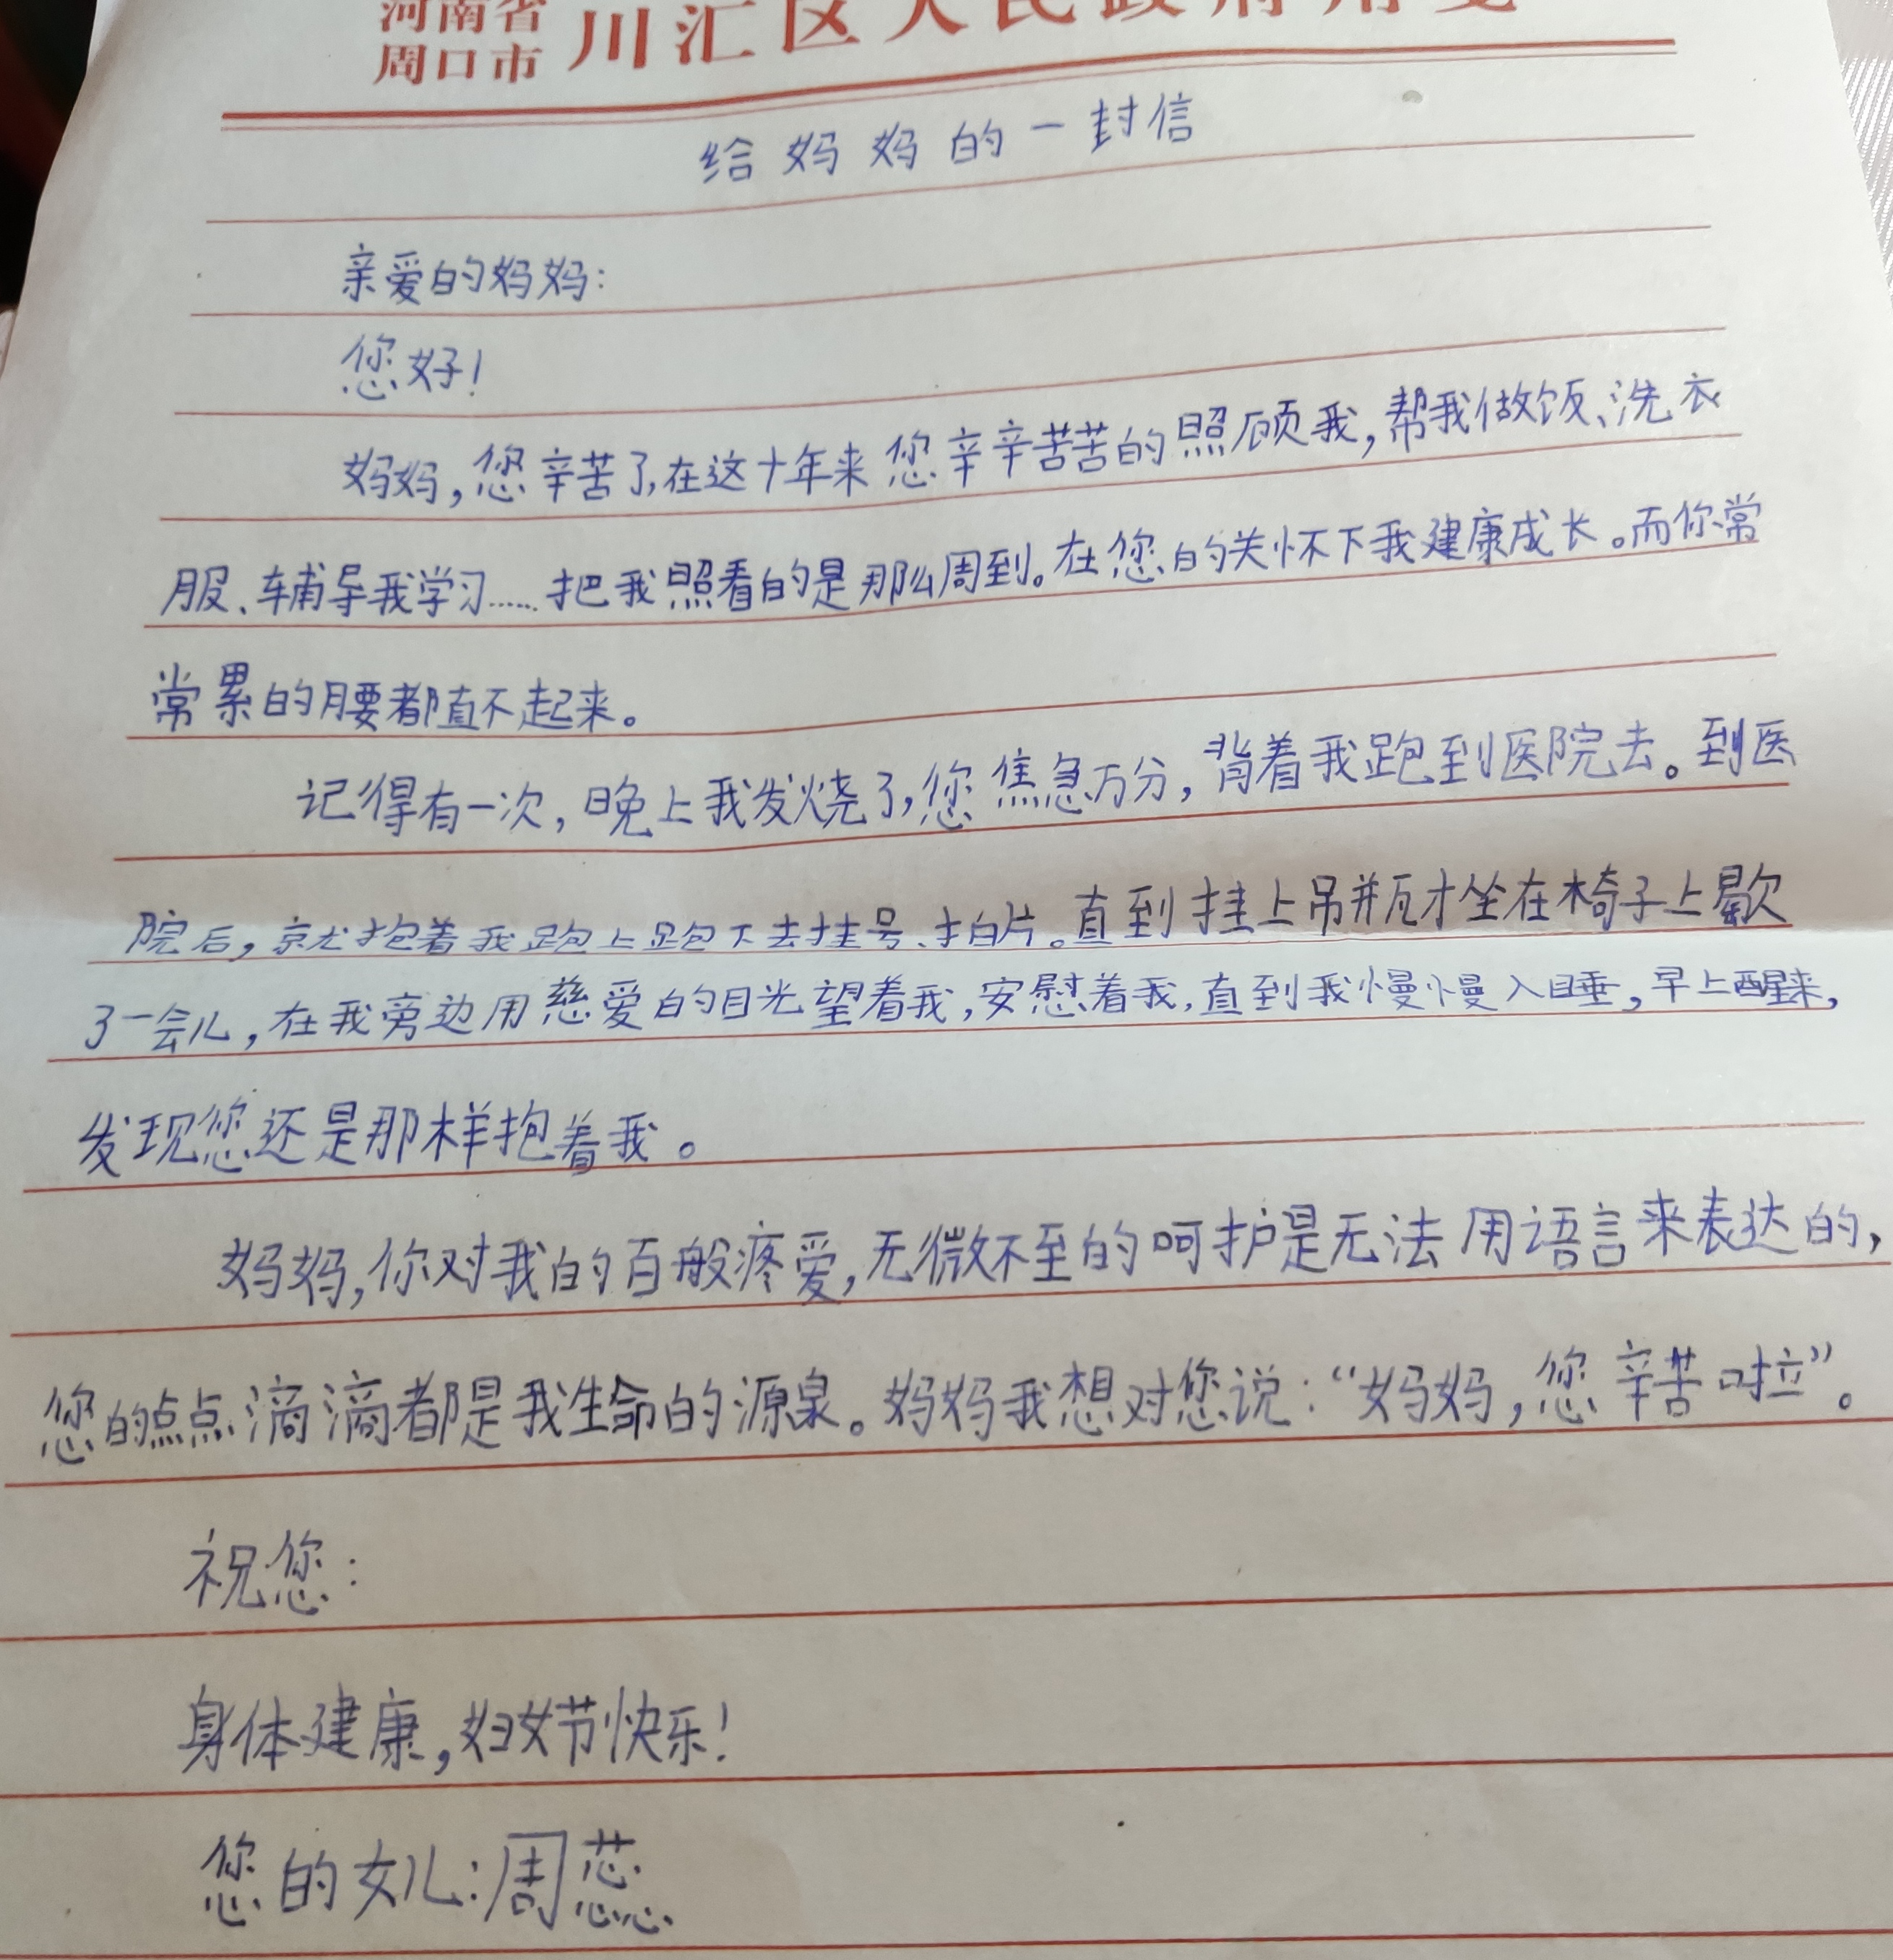 河南省
周口市 川汇区人民政府用笺
给妈妈的一封信
亲爱的妈妈：
您好！
妈妈，您辛苦了，在这十年来您辛辛苦苦的照顾我，帮我做饭、洗衣
服、辅导我学习……把我照看的是那么周到。在您的关怀下我建康成长。而你常
常累的腰都直不起来。
记得有一次，晚上我发烧了，您焦急万分，背着我跑到医院去。到医
院后，就抱着我跑上跑下去挂号、拍片。直到挂上吊瓶才坐在椅子上歇
了一会儿，在我旁边用慈爱的目光望着我，安慰着我，直到我慢慢入睡，早上醒来，
发现您还是那样抱着我。
妈妈，你对我的百般疼爱，无微不至的呵护是无法用语言来表达的，
您的点点滴滴都是我生命的源泉。妈妈我想对您说：“妈妈，您辛苦啦”。
祝您：
身体建康，妇女节快乐！
您的女儿：周蕊